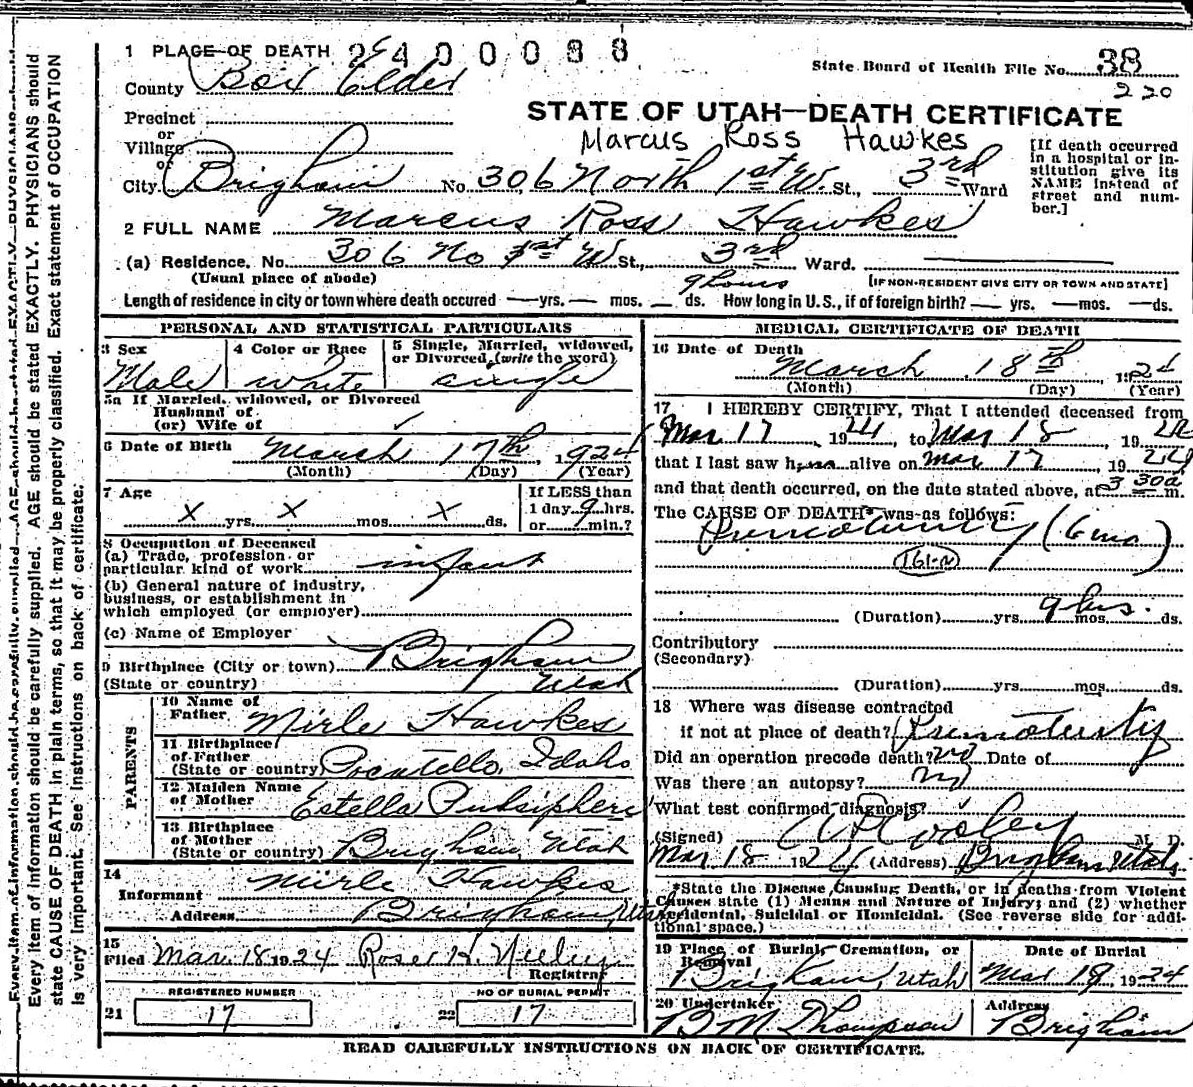 Every item of information should be carefully supplied. AGE should be stated EXACTLY. PHYSICIANS should
state CAUSE OF DEATH in plain terms, so that it may be properly classified. Exact statement of OCCUPATION
is very important. See instructions on back of certificate.
1 PLACE OF DEATH 2400088
State Board of Health File No. 38
220
County Box Elder
STATE OF UTAH—DEATH CERTIFICATE
Precinct
Marcus Ross Hawkes
or
Village
or
City Brigham No. 306 North 1st W. St., 3rd Ward
[If death occurred in a hospital or institution give its NAME instead of street and number.]
2 FULL NAME Marcus Ross Hawkes
(a) Residence. No. 306 No 1st W St., 3rd Ward.
(Usual place of abode) [IF NON-RESIDENT GIVE CITY OR TOWN AND STATE]
9 hours
Length of residence in city or town where death occured — yrs. — mos. — ds. How long in U.S., if of foreign birth? — yrs. — mos. — ds.
PERSONAL AND STATISTICAL PARTICULARS
3 Sex
Male
4 Color or Race
white
5 Single, Married, widowed,
or Divorced, (write the word)
single
5a If Married, widowed, or Divorced
Husband of
(or) Wife of
6 Date of Birth March 17th, 1924
(Month) (Day) (Year)
7 Age
X yrs. X mos. X ds.
If LESS than
1 day 9 hrs.
or min.?
8 Occupation of Deceased
(a) Trade, profession or
particular kind of work infant
(b) General nature of industry,
business, or establishment in
which employed (or employer)
(c) Name of Employer
9 Birthplace (City or town) Brigham
(State or country) Utah
PARENTS
10 Name of
Father Mirle Hawkes
11 Birthplace
of Father
(State or country) Pocatello, Idaho
12 Maiden Name
of Mother Estella Pulsipher
13 Birthplace
of Mother
(State or country) Brigham, Utah
14
Informant Mirle Hawkes
Address Brigham, Utah
15
Filed Mar. 18 1924 Rose H.
Registrar
REGISTERED NUMBER
21 17
NO OF BURIAL PERMIT
22 17
MEDICAL CERTIFICATE OF DEATH
16 Date of Death
March 18th, 1924
(Month) (Day) (Year)
17 I HEREBY CERTIFY, That I attended deceased from
Mar 17, 1924, to Mar 18, 1924
that I last saw him alive on Mar 17, 1924
and that death occurred, on the date stated above, at 3 30a m.
The CAUSE OF DEATH* was as follows:
Prematurity (6 mo)
161-a
9 hrs.
(Duration) yrs. mos. ds.
Contributory
(Secondary)
(Duration) yrs. mos. ds.
18 Where was disease contracted
if not at place of death? Prematurity
Did an operation precede death? no Date of
Was there an autopsy? no
What test confirmed diagnosis?
(Signed) M. D.
Mar 18 1924 (Address) Brigham Utah
*State the Disease Causing Death, or in deaths from Violent
Causes state (1) Means and Nature of Injury; and (2) whether
Accidental, Suicidal or Homicidal. (See reverse side for additional space.)
19 Place of Burial, Cremation, or
Removal
Brigham, Utah
Date of Burial
Mar 18, 1924
20 Undertaker
B M Thompson
Address
Brigham
READ CAREFULLY INSTRUCTIONS ON BACK OF CERTIFICATE.